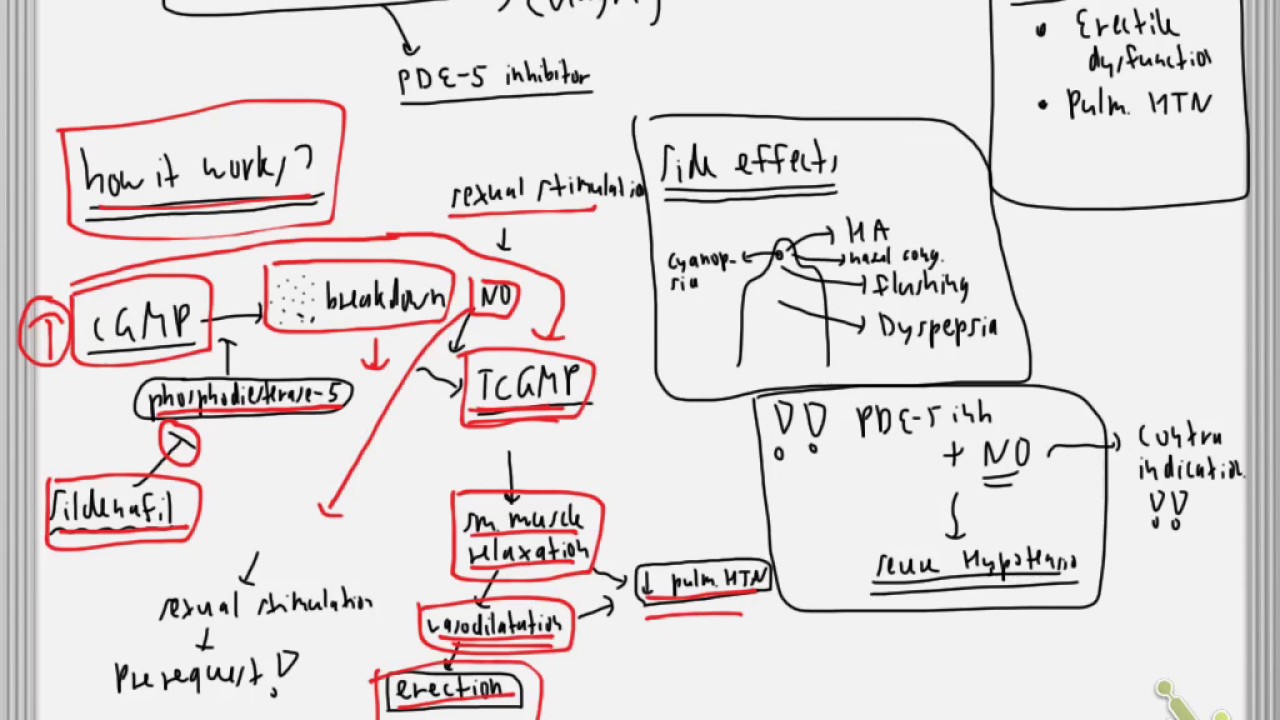 PDE-5 inhibitor
Erectile
dysfunction
Pulm. HTN
how it works?
sexual stimulatio
side effects
HA
cyanop-
sia
nasal cong.
flushing
Dyspepsia
cGMP
breakdown
NO
phosphodiesterase-5
↑cGMP
sildenafil
PDE-5 inh
+ NO
Contra
indication
!!
Hypotensio
sm. muscle
relaxation
↓ pulm. HTN
vasodilatation
erection
sexual stimulation
prerequest!